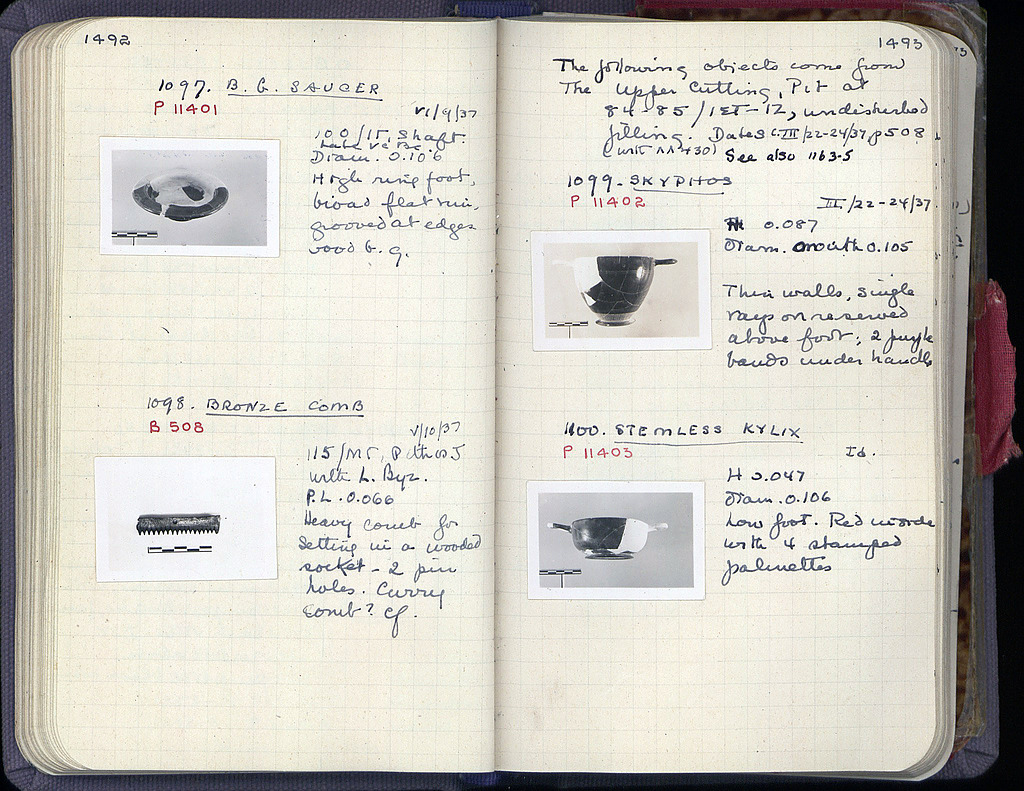 1492
1097. B. G. SAUCER
P 11401
VI/9/37
100/IT. Shaft.
Late
Diam. 0.106
High ring foot,
broad flat rim,
grooved at edges
Good b. g.
1098. BRONZE COMB
B 508
V/10/37
115/MS, Pithos 5
with L. Byz.
P.L. 0.066
Heavy comb for
setting in a wooded
socket - 2 pin
holes. Curry
comb? cf.
1493
The following objects come from
The Upper Cutting, Pit at
84-85/ , undisturbed
filling. Dates III/22-24/37, p 508
(with AA 430) See also 1163-5
1099. SKYPHOS
P 11402
III/22-24/37.
H 0.087
Diam. mouth 0.105
Thin walls, single
rays on reserved
above foot; 2 purple
bands under handle
1100. STEMLESS KYLIX
P 11403
Id.
H 0.047
Diam. 0.106
Low foot. Red inside
with 4 stamped
palmettes